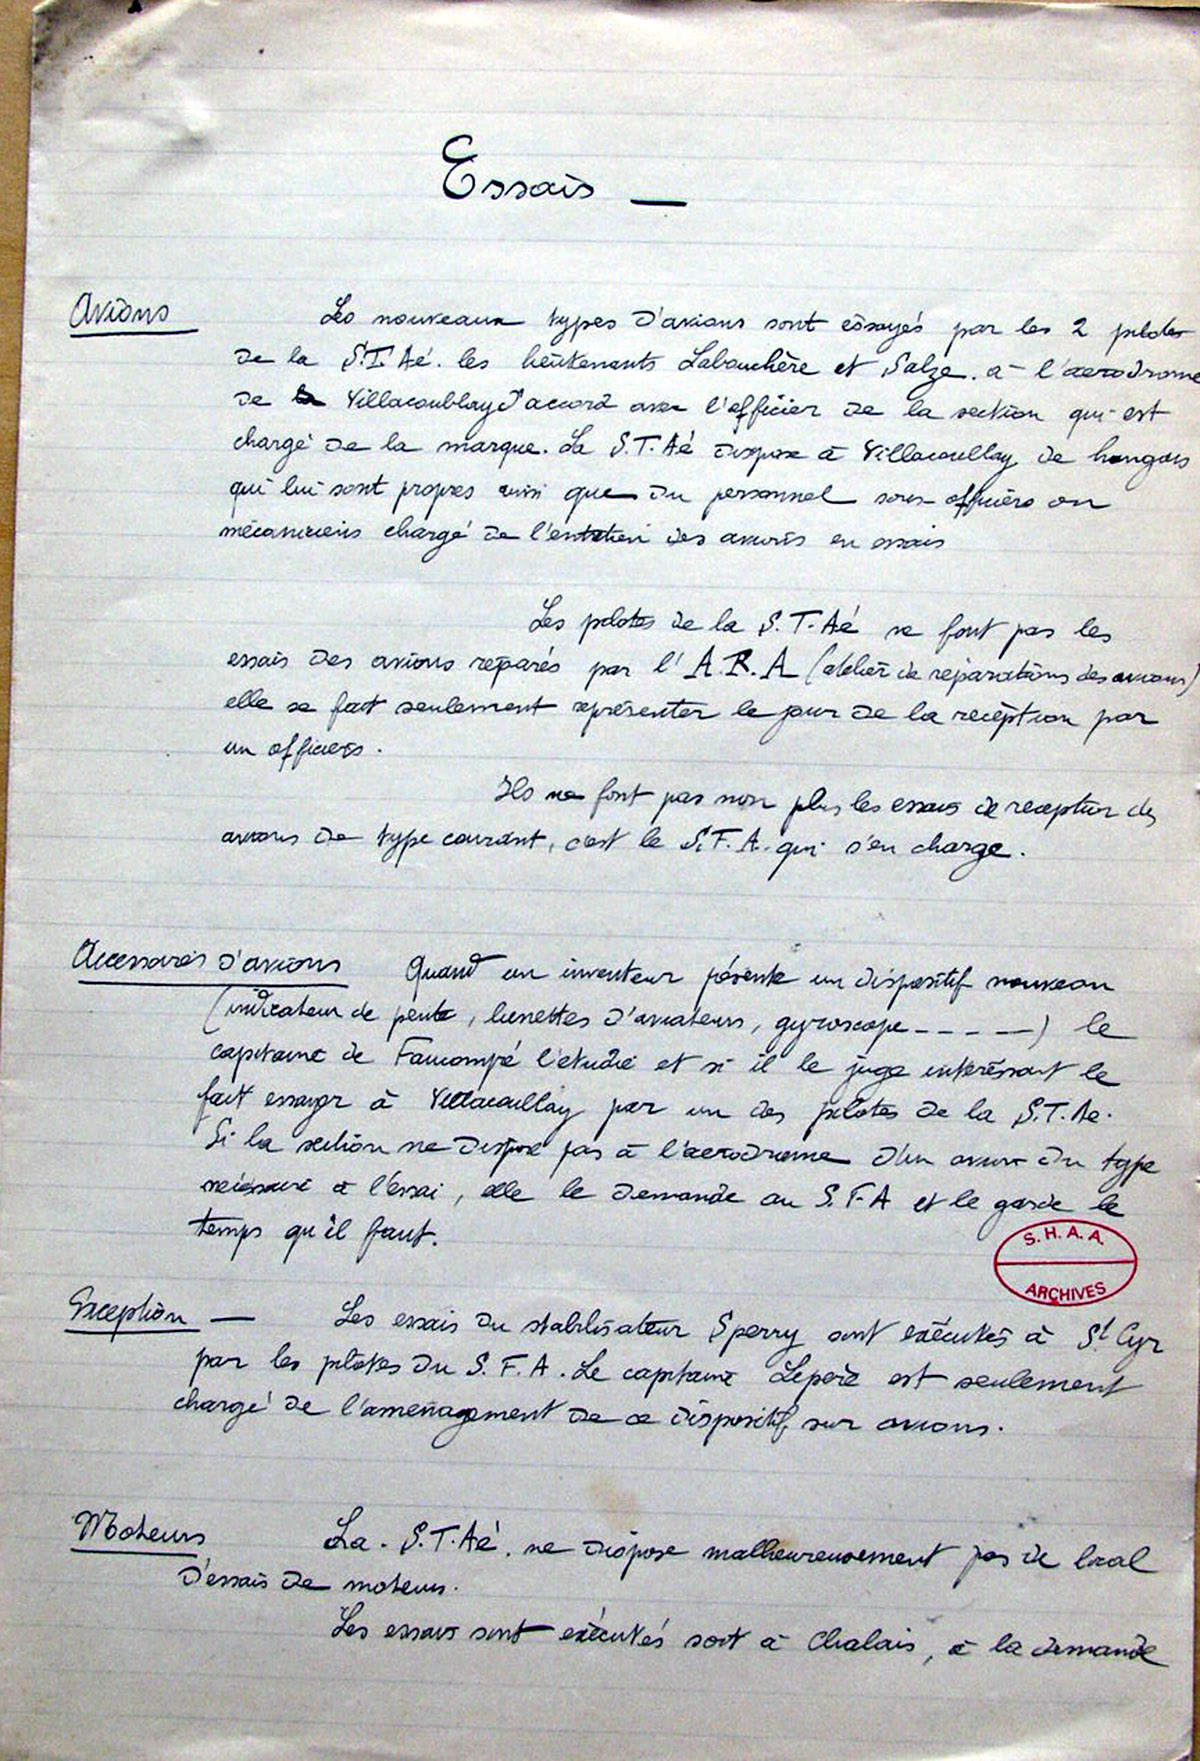 Essais —
Avions Les nouveaux types d'avions sont essayés par les 2 pilotes
de la S.T.Aé. les lieutenants Labouchère et Salze. à l'aerodrome
de la Villacoublay d'accord avec l'officier de la section qui est
chargé de la marque. La S.T.Aé dispose à Villacoublay de hangars
qui lui sont propres ainsi que du personnel sous-officiers ou
mécaniciens chargé de l'entretien des avions en essais
Les pilotes de la S.T.Aé ne font pas les
essais des avions réparés par l'A.R.A (atelier de réparations des avions)
elle se fait seulement représenter le jour de la réception par
un officiers.
Ils ne font pas non plus les essais de reception des
avions de type courant, c'est le S.F.A. qui s'en charge.
Accessoires d'avions Quand un inventeur présente un dispositif nouveau
(indicateur de pente, lunettes d'aviateurs, gyroscope - - - - —) le
capitaine de l'étudie et si il le juge intéressant le
fait essayer à Villacoublay par un des pilotes de la S.T.Ae.
Si la section ne dispose pas à l'aerodrome d'un avion du type
nécessaire à l'essai, elle le demande au S.F.A et le garde le
temps qu'il faut.
S.H.A.A.
ARCHIVES
Exception — Les essais du stabilisateur Sperry sont exécutés à St Cyr
par les pilotes du S.F.A. Le capitaine Lepère est seulement
chargé de l'aménagement de ce dispositif sur avions.
Moteurs La. S.T.Aé. ne dispose malheureusement pas de local
d'essais de moteurs.
Les essais sont exécutés soit à Chalais, à la demande